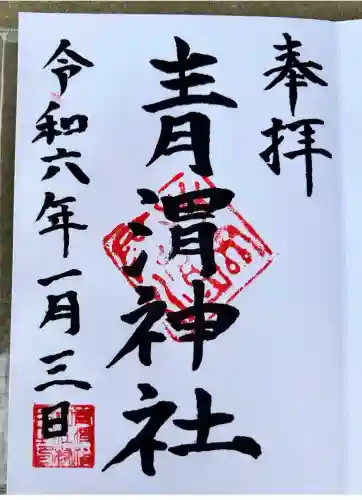 奉拝
青渭神社
令和六年一月三日